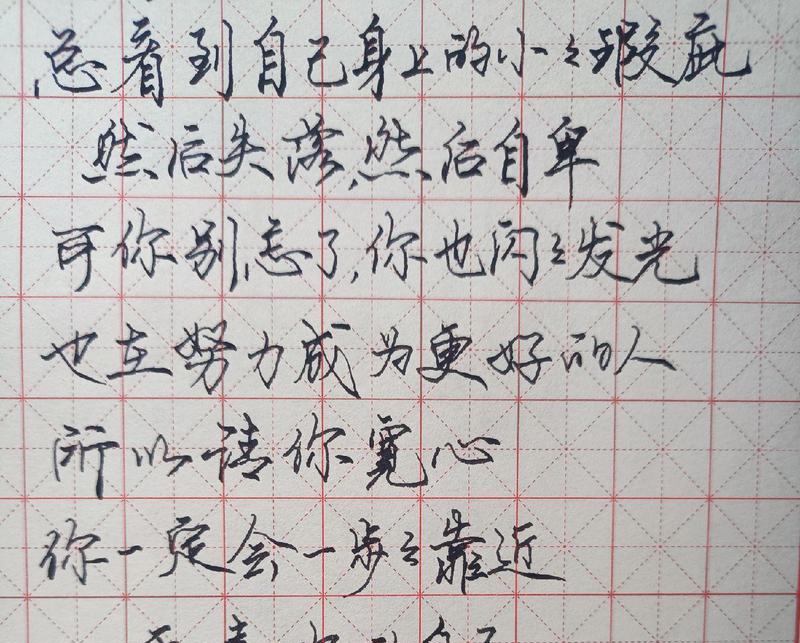 总看到自己身上的小々瑕疵
然后失落,然后自卑
可你别忘了,你也闪々发光
也在努力成为更好的人
所以请你宽心
你一定会一步々靠近